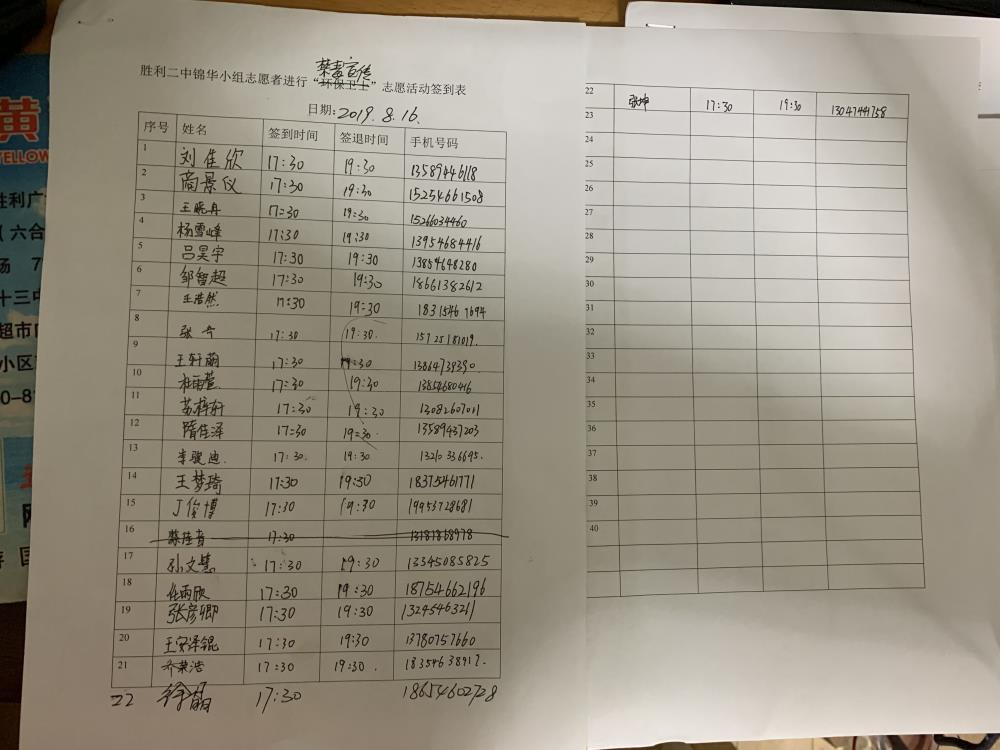 禁毒宣传
胜利二中锦华小组志愿者进行“环保卫士”志愿活动签到表
日期：2019.8.16.
序号 姓名 签到时间 签退时间 手机号码
1 刘佳欣 17:30 19:30 13589446118
2 商景仪 17:30 19:30 15254661508
3 王晓冉 17:30 19:30 15266034460
4 杨雪峰 17:30 19:30 13954684416
5 吕昊宇 17:30 19:30 13854648280
6 邹智超 17:30 19:30 18661382612
7 王浩然 17:30 19:30 18315467694
8 张 17:30 19:30. 15725181019.
9 王轩 17:30 19:30 13864739390
10 杜雨萱 17:30 19:30 13854680446
11 苏梓轩 17:30 19:30 13082607011
12 隋佳泽 17:30 19:30 13589437203
13 李骏迪. 17:30. 19:30 13210336695.
14 王梦琦 17:30 19:30 18375461771
15 丁俊博 17:30 19:30 19953728681
16 17:30 13181868978
17 孙文慧 17:30 19:30 13345085825
18 任雨欣 17:30 19:30 18754662196
19 张彦卿 17:30 19:30 13245463211
20 王安泽锟 17:30 19:30 13780757660
21 乔荣浩 17:30 19:30. 18354638917.
22 徐萌 17:30 18654602728
22 张坤 17:30 19:30 13047447758
23
24
25
26
27
28
29
30
31
32
33
34
35
36
37
38
39
40
黄
YELLOW
胜利广
（六合
场 7
十三中
超市
小区
0-8